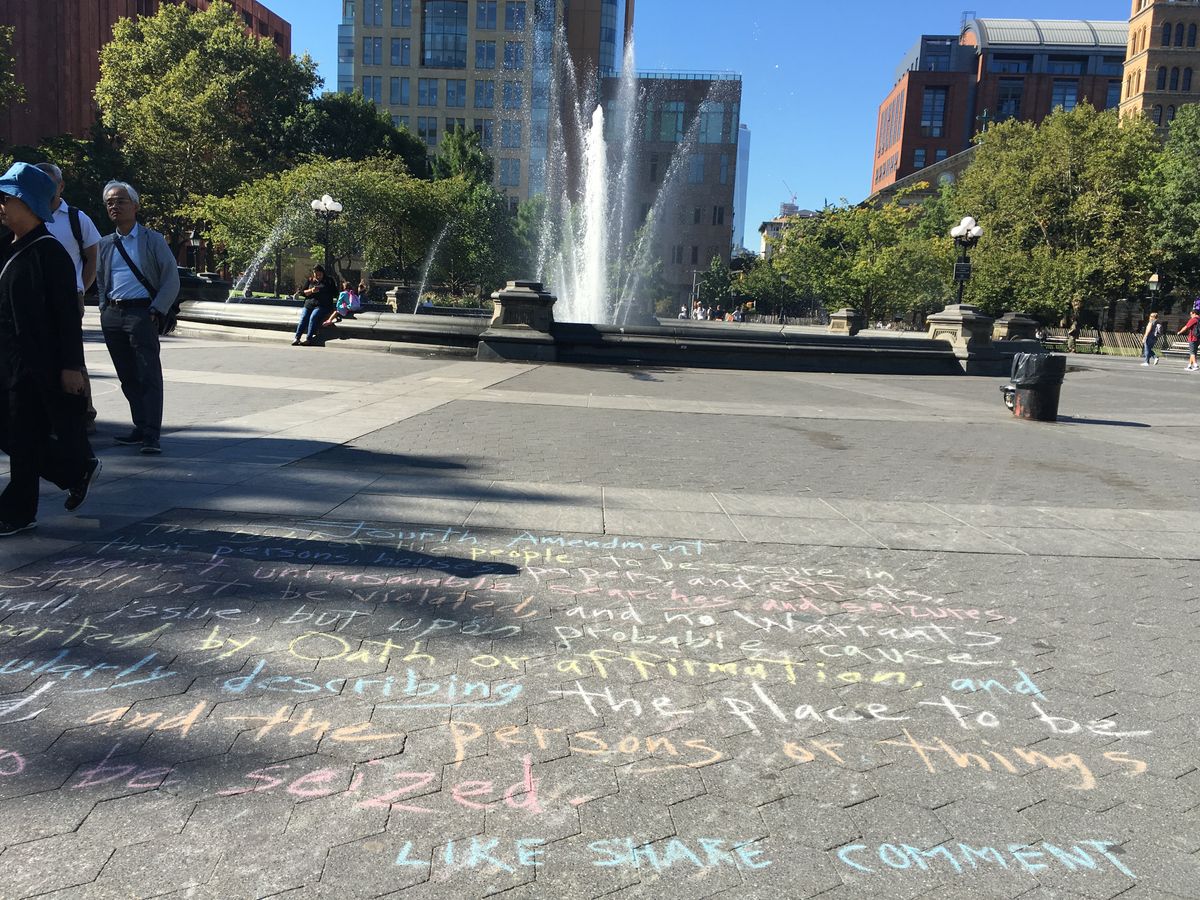 Fourth Amendment
The of the people to be secure in
their persons, houses, papers, and effects,
against unreasonable searches and seizures,
shall not be violated, and no Warrants
shall issue, but upon probable cause
by Oath or affirmation, and
describing the place to be
and the persons or things
to be seized.
LIKE SHARE COMMENT